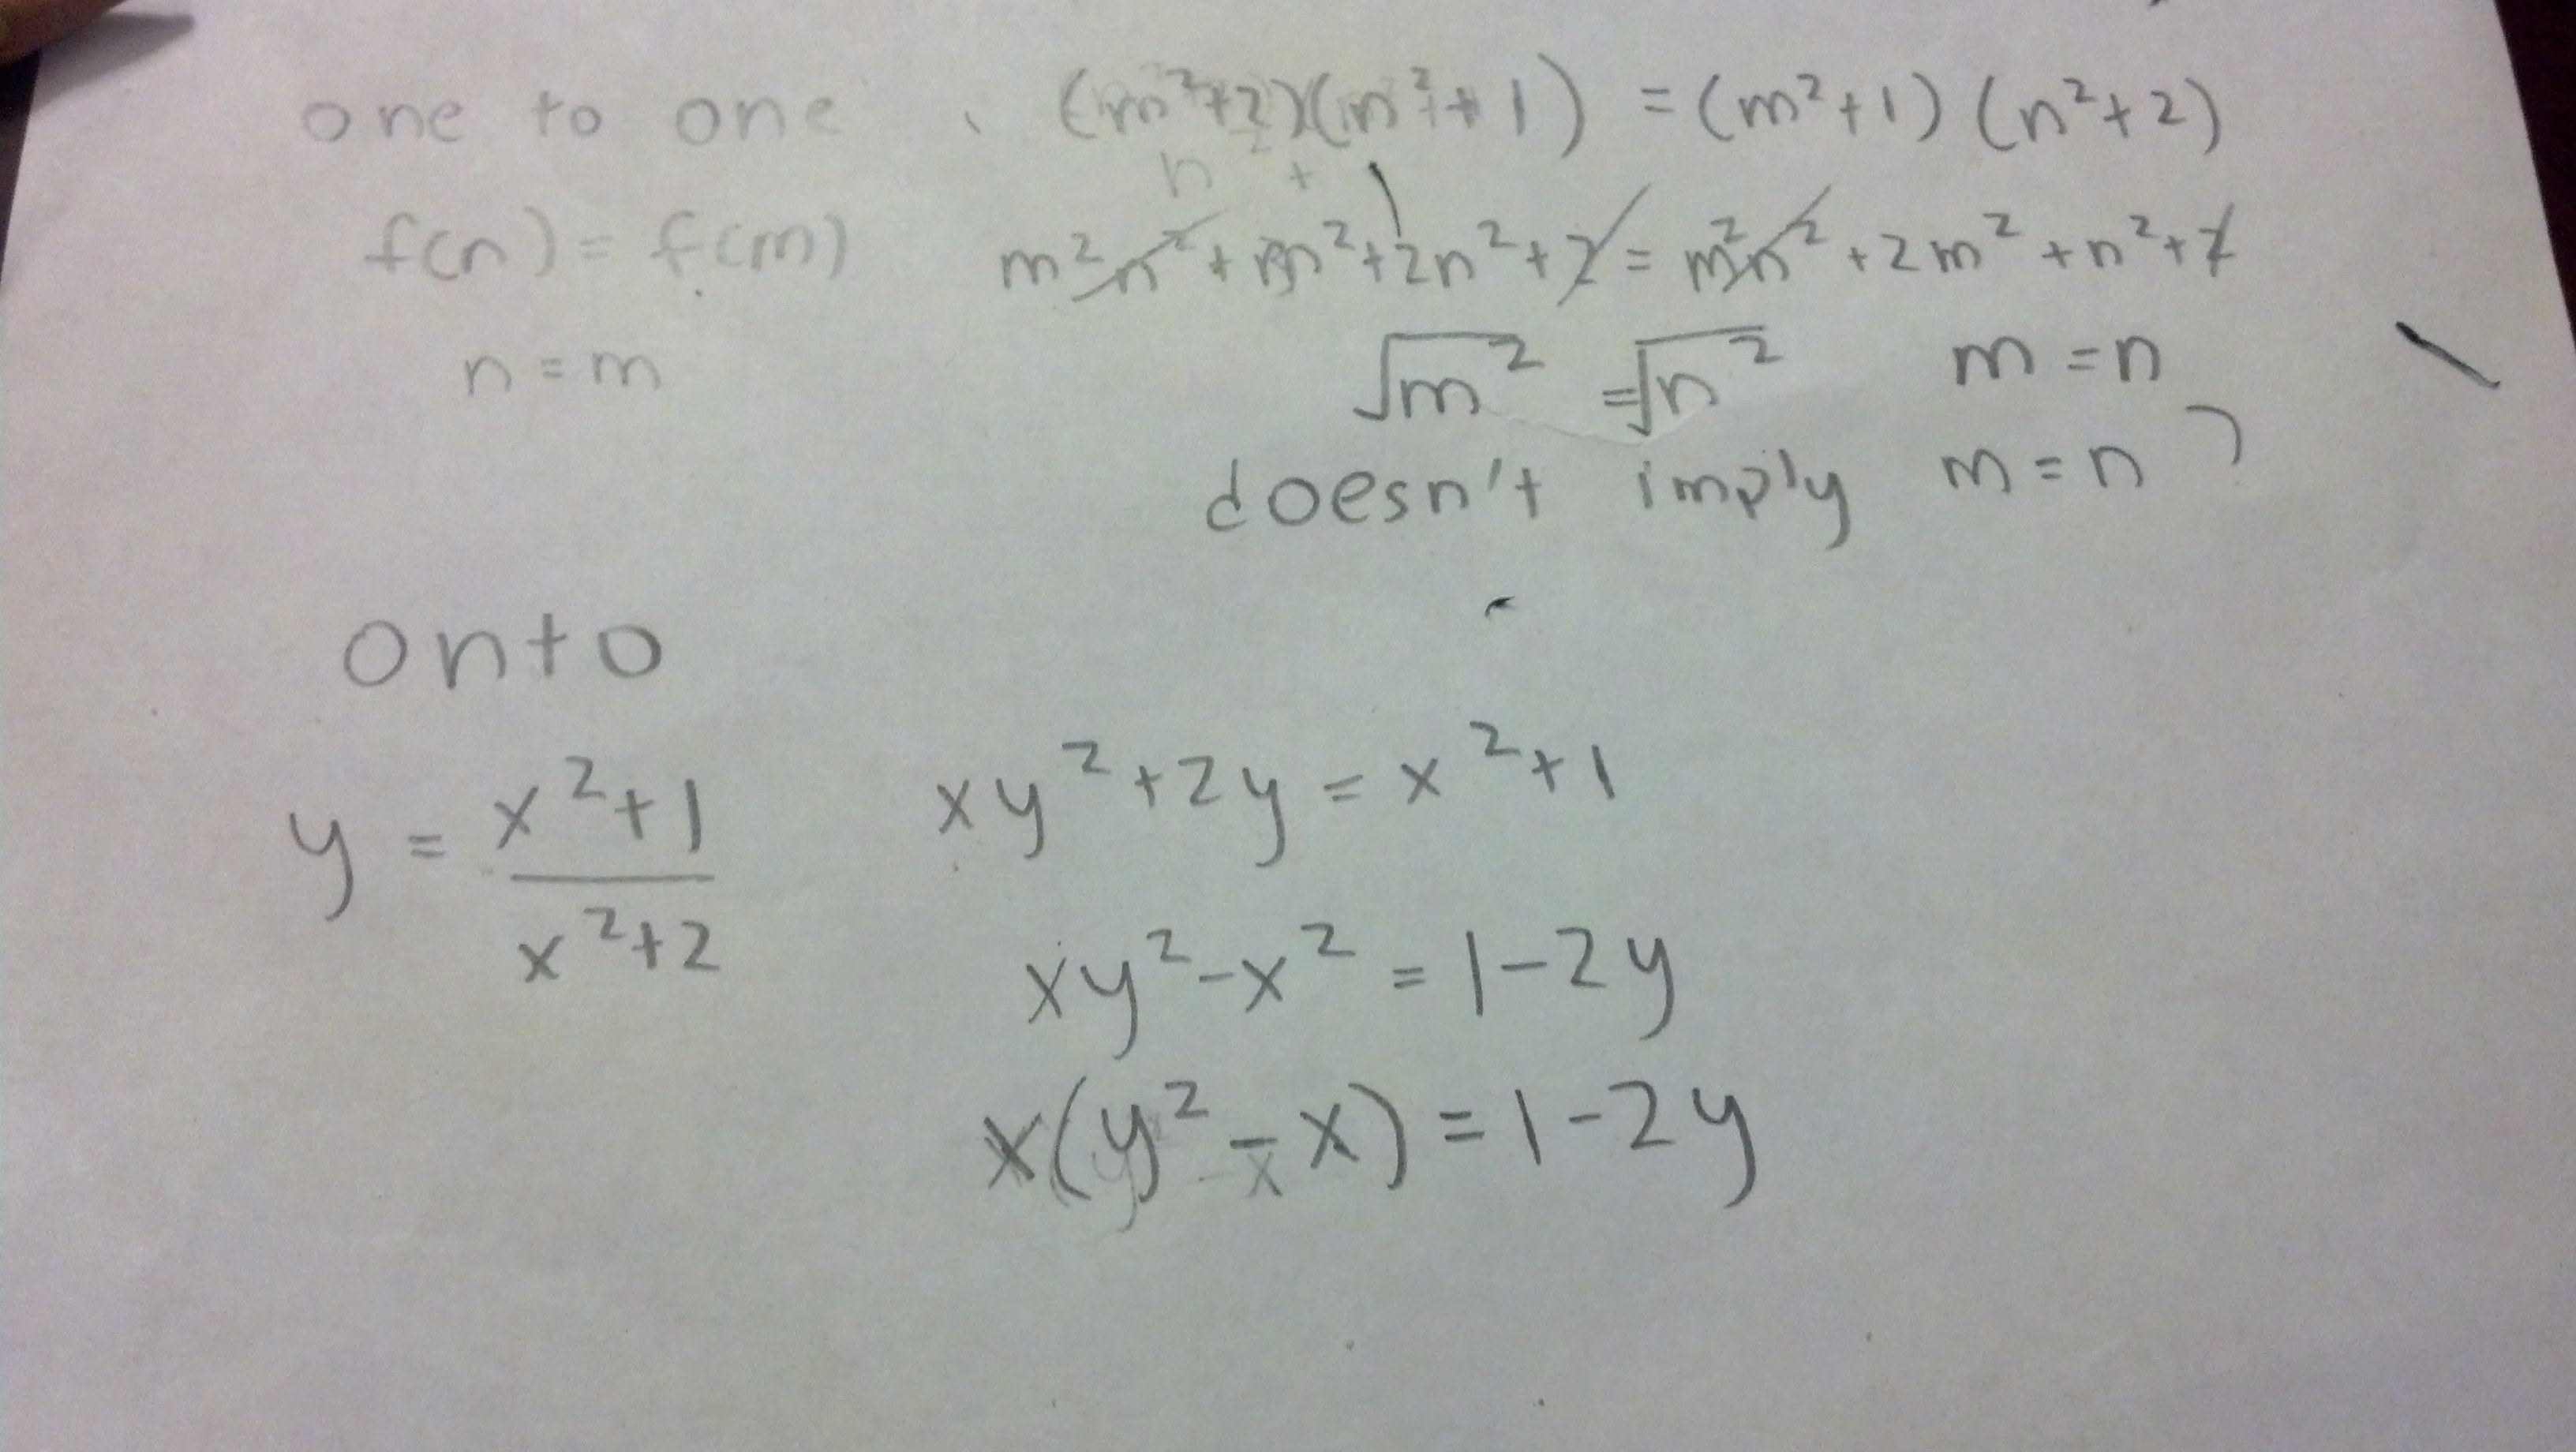 one to one
f(n) = f(m)
n = m
(m²+2)(n²+1) = (m²+1)(n²+2)
n² +
m²n² + m² + 2n² + 2 = m²n² + 2m² + n² + 2
√m² = √n² m = n
doesn't imply m = n
onto
y = x²+1
x²+2
xy² + 2y = x² + 1
xy² - x² = 1 - 2y
x(y² - x) = 1 - 2y